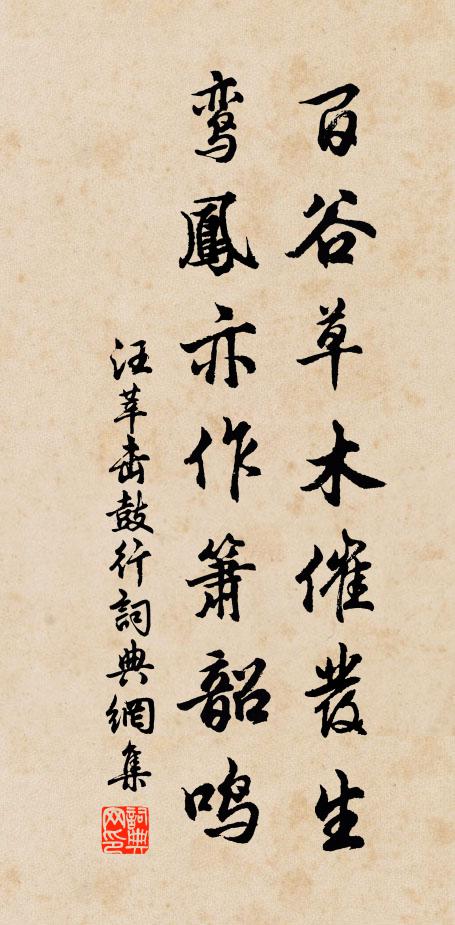 百谷草木催發生
鸾鳳亦作箫韶鸣
汪莘击鼓行詞典網集
詞典网印